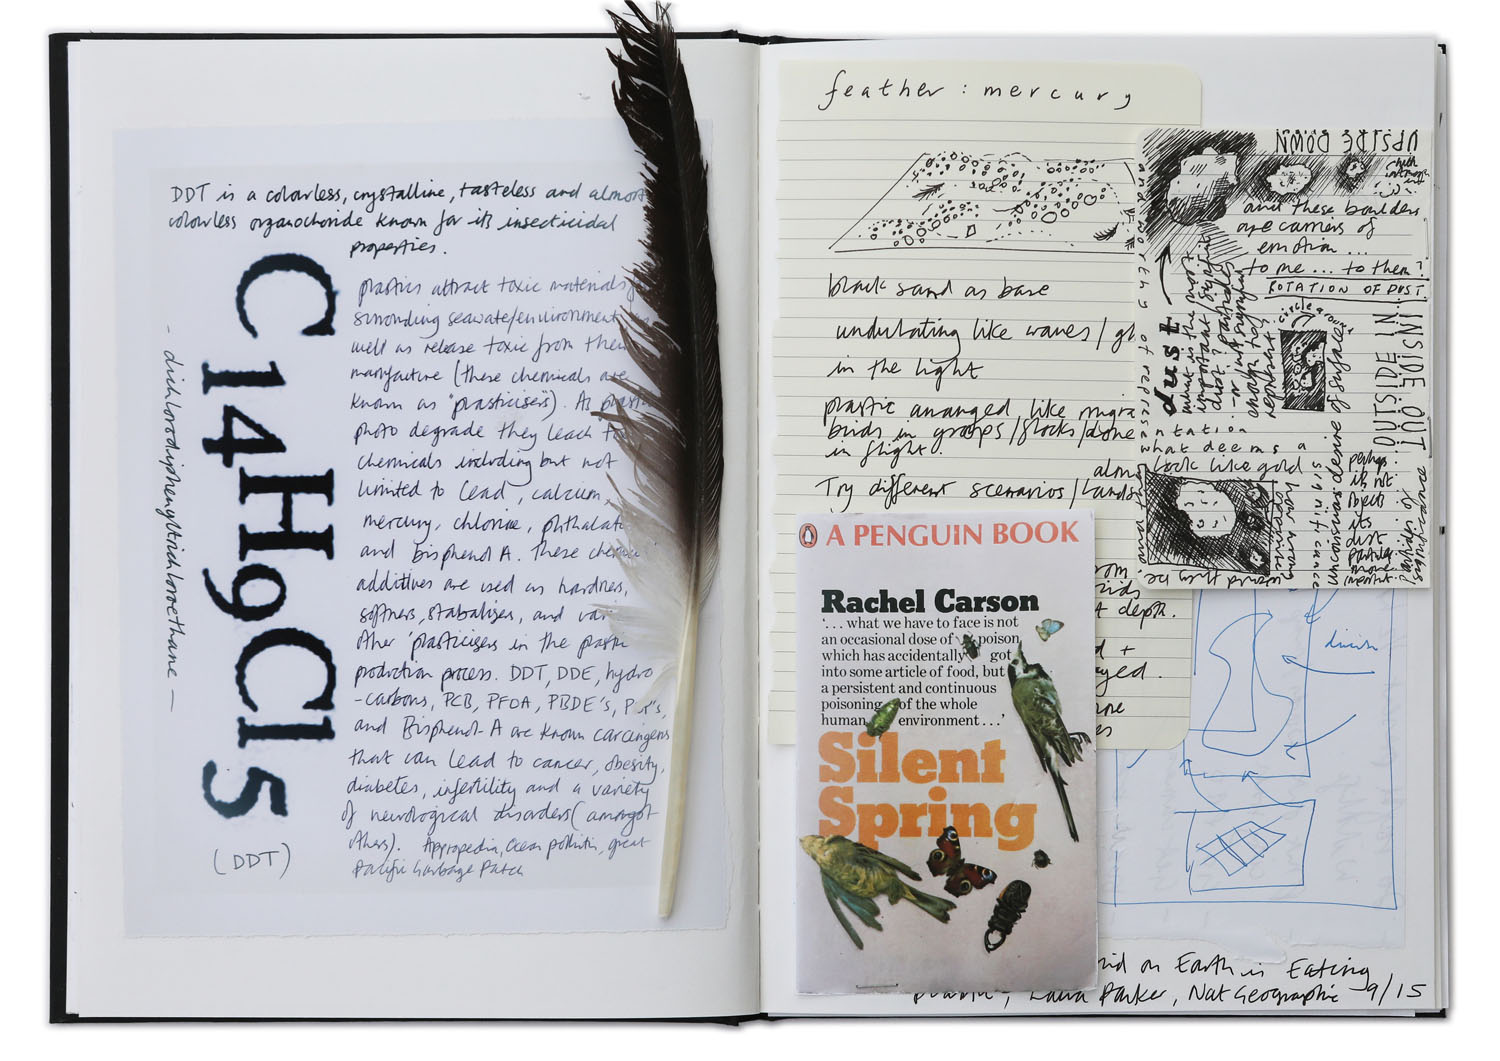 DDT is a colourless, crystalline, tasteless and almost
colourless organochoride known for its insecticidal
properties.
C14H9Cl5
(DDT)
- dichlorodiphenyltrichloroethane -
plastics attract toxic materials
surronding seawate/environment
well as release toxic from their
manufacture (these chemicals are
known as 'plasticisers). As plastic
photo degrade they leach
chemicals including but not
limited to lead, calcium,
mercury, chlorine, phthalate
and bisphenol A. These
additives are used as hardners,
softners, stabalisers, and
other 'plasticisers in the plastic
production process. DDT, DDE, hydro
-carbons, PCB, PFOA, PBDE's,
and Bisphenol-A are known carcingens
that can lead to cancer, obesity,
diabetes, infertility and a variety
of neurological disorders (amongst
others). Appropedia, Ocean pollution, great
Pacific Garbage Patch
feather : mercury
black sand as base
undulating like waves /
in the light
plastic arranged like
birds in groups/flocks/
in flight.
Try different scenarios /
depth.
UPSIDE DOWN
and these boulders
are carriers of
emotion ...
to me ... to them?
ROTATION OF DUST.
INSIDE OUT
OUTSIDE IN
dust
what is the most
important
dust? particles
or just
enough to
represent
what deems a
look like gold
significance
unconscious desire
perhaps
its not
objects
its
dust
particles
more
important.
A PENGUIN BOOK
Rachel Carson
'. . . what we have to face is not
an occasional dose of poison
which has accidentally got
into some article of food, but
a persistent and continuous
poisoning of the whole
human environment . . .'
Silent
Spring
on Earth is Eating
Laura Parker, Nat Geographic 9/15